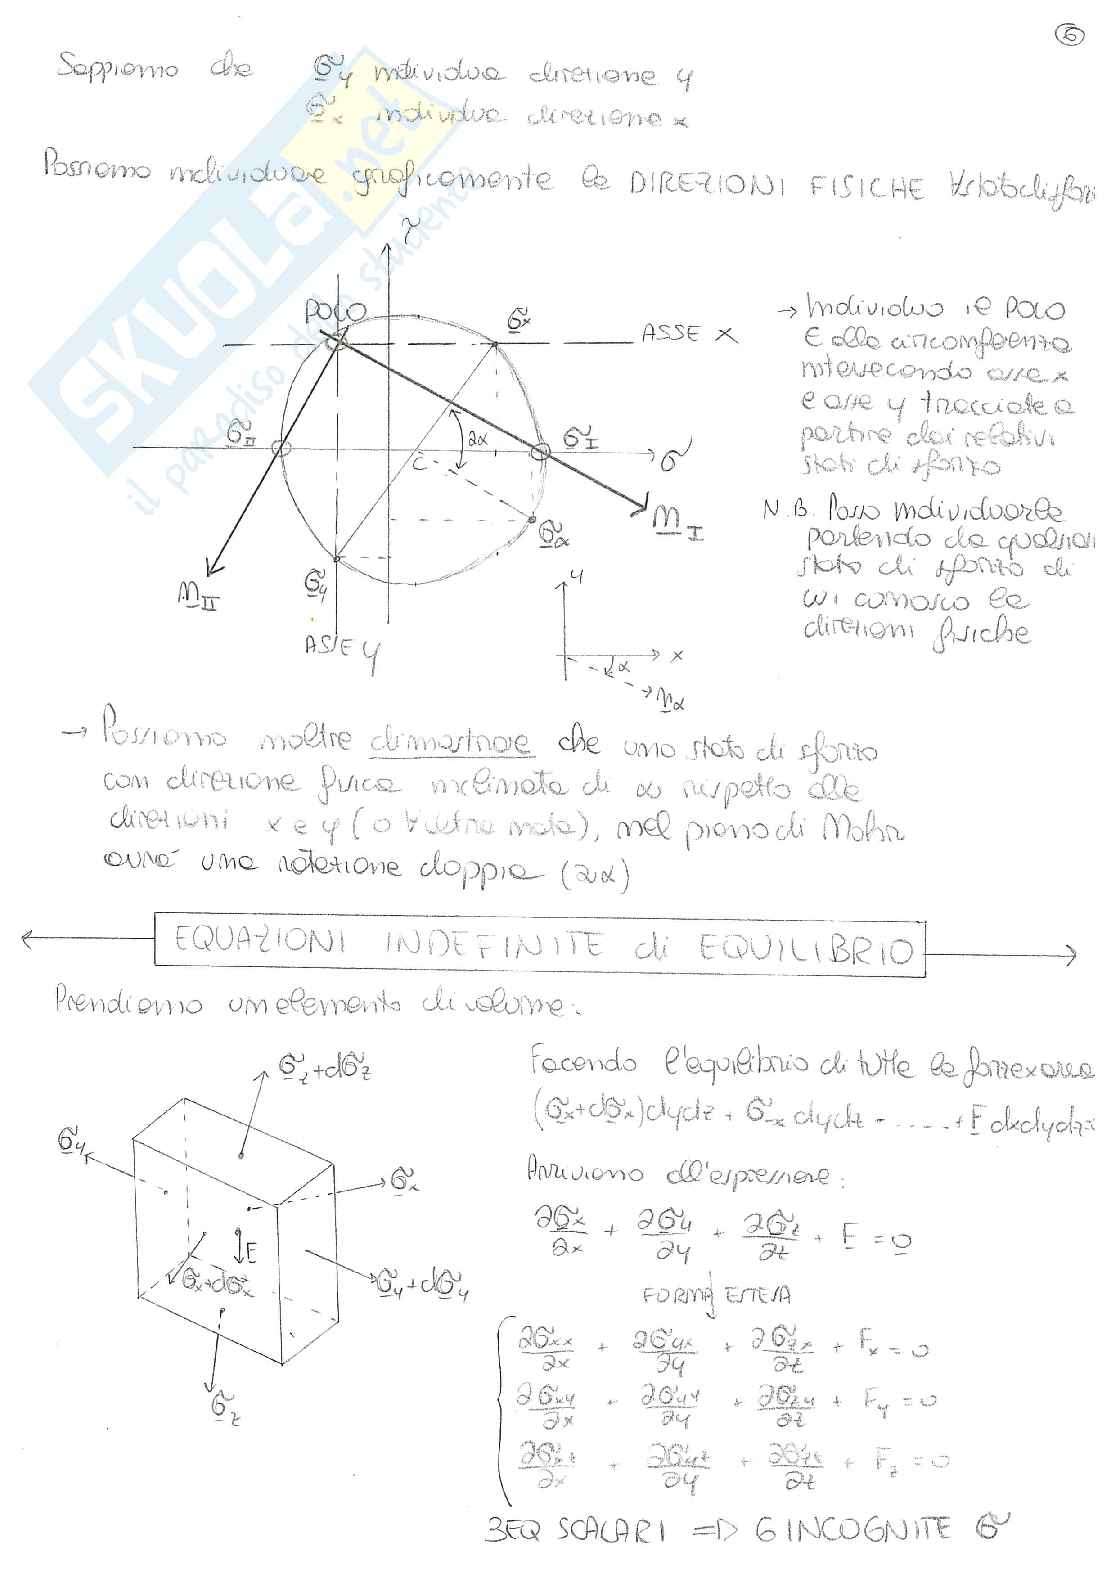 6
Sappiamo che σy individua direzione y
σx individua direzione x
Possiamo individuare graficamente le DIREZIONI FISICHE ∀ stato di sforzo
SKUOLA.net
il paradiso dello studente
τ
POLO
σx
ASSE x
σII
2α
σI
σ
C
σα
nI
nII
σy
ASSE y
y
x
α
nα
→ Individuo il POLO
∈ alla circonferenza
intersecando asse x
e asse y tracciate a
partire dai relativi
stati di sforzo
N.B. Posso individuarle
partendo da qualsiasi
stato di sforzo di
cui conosco le
direzioni fisiche
→ Possiamo inoltre dimostrare che uno stato di sforzo
con direzione fisica inclinata di α rispetto alle
direzioni x e y (o ∀ altra nota), nel piano di Mohr
avrà una rotazione doppia (2α)
EQUAZIONI INDEFINITE di EQUILIBRIO
Prendiamo un elemento di volume:
σz+dσz
σy
σx
F
σx+dσx
σy+dσy
σz
Facendo l'equilibrio di tutte le forze x area
(σx+dσx)dydz + σ-x dydz - ..... + F dxdydz =
Arriviamo all'espressione:
∂σx/∂x + ∂σy/∂y + ∂σz/∂z + F = 0
FORMA ESTESA
∂σxx/∂x + ∂σyx/∂y + ∂σzx/∂z + Fx = 0
∂σxy/∂x + ∂σyy/∂y + ∂σzy/∂z + Fy = 0
∂σxz/∂x + ∂σyz/∂y + ∂σzz/∂z + Fz = 0
3EQ SCALARI => 6 INCOGNITE σ